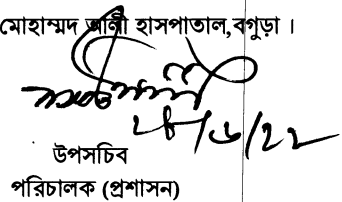 মোহাম্মদ আলী হাসপাতাল, বগুড়া ।
২৮/৬/২২
উপসচিব
পরিচালক (প্রশাসন)